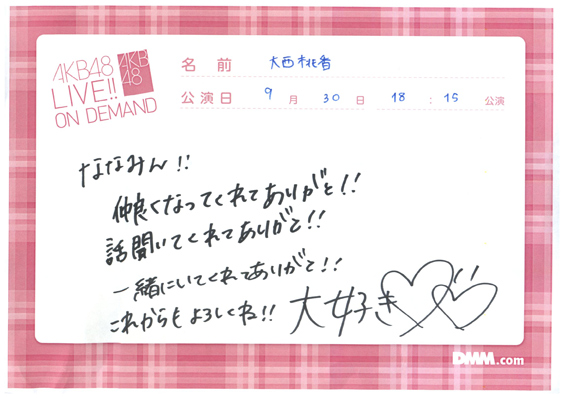 AKB48
LIVE!!
ON DEMAND
AKB
48
名前 大西桃香
公演日 9月30日 18:15 公演
ななみん!!
仲良くなってくれてありがと!!
話聞いてくれてありがと!!
一緒にいてくれてありがと!!
これからもよろしくね!! 大好き
DMM.com